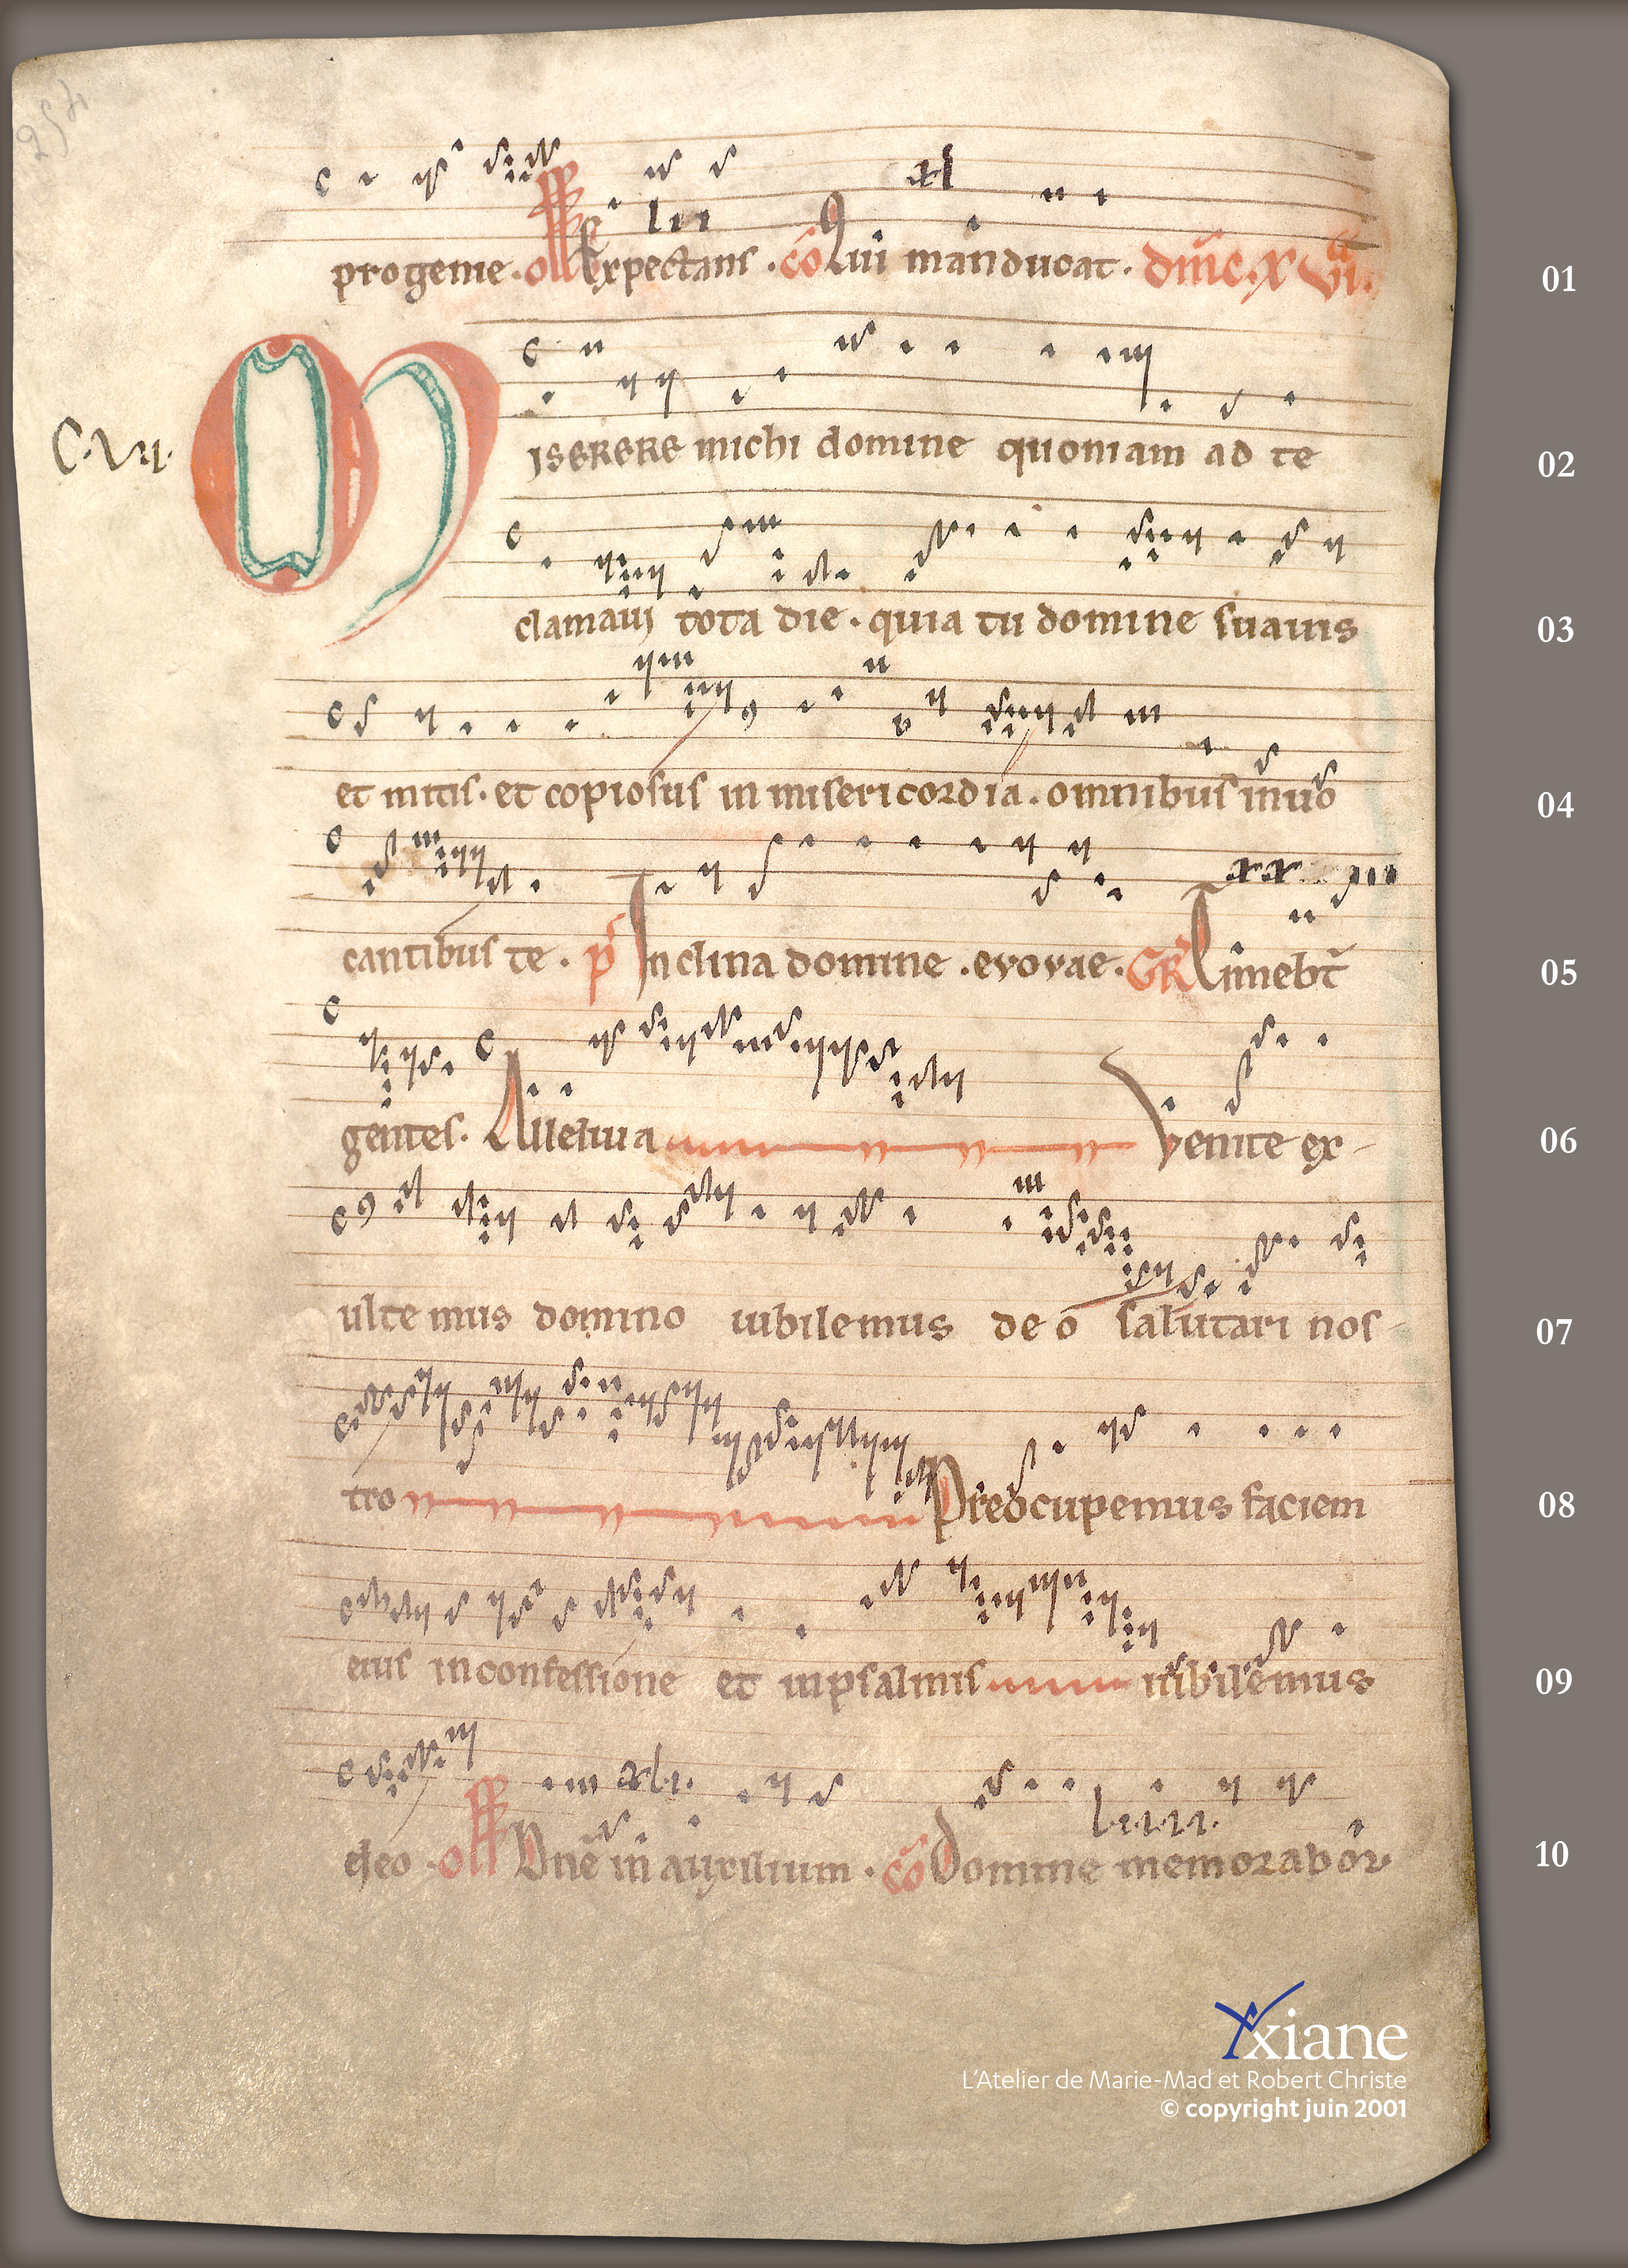 xl
lii
progenie . off Expectans . co Qui manducat . dnic . x vi a
C.VII.
MISERERE michi domine quoniam ad te
clamavi tota die . quia tu domine suauis
et mitis . et copiosus in misericordia . omnibus inuo
xx
cantibus te . p Inclina domine . evovae . GR Timebt
gentes . Alleluia Venite ex-
ultemus domino iubilemus deo salutari nos-
tro Preocupemus faciem
eius in confessione et in psalmis iubilemus
xl.i. l.i.i.i.i.
ei deo . off Dne in auxilium . co Domine memorabor
01
02
03
04
05
06
07
08
09
10
Yxiane
L'Atelier de Marie-Mad et Robert Christe
© copyright juin 2001